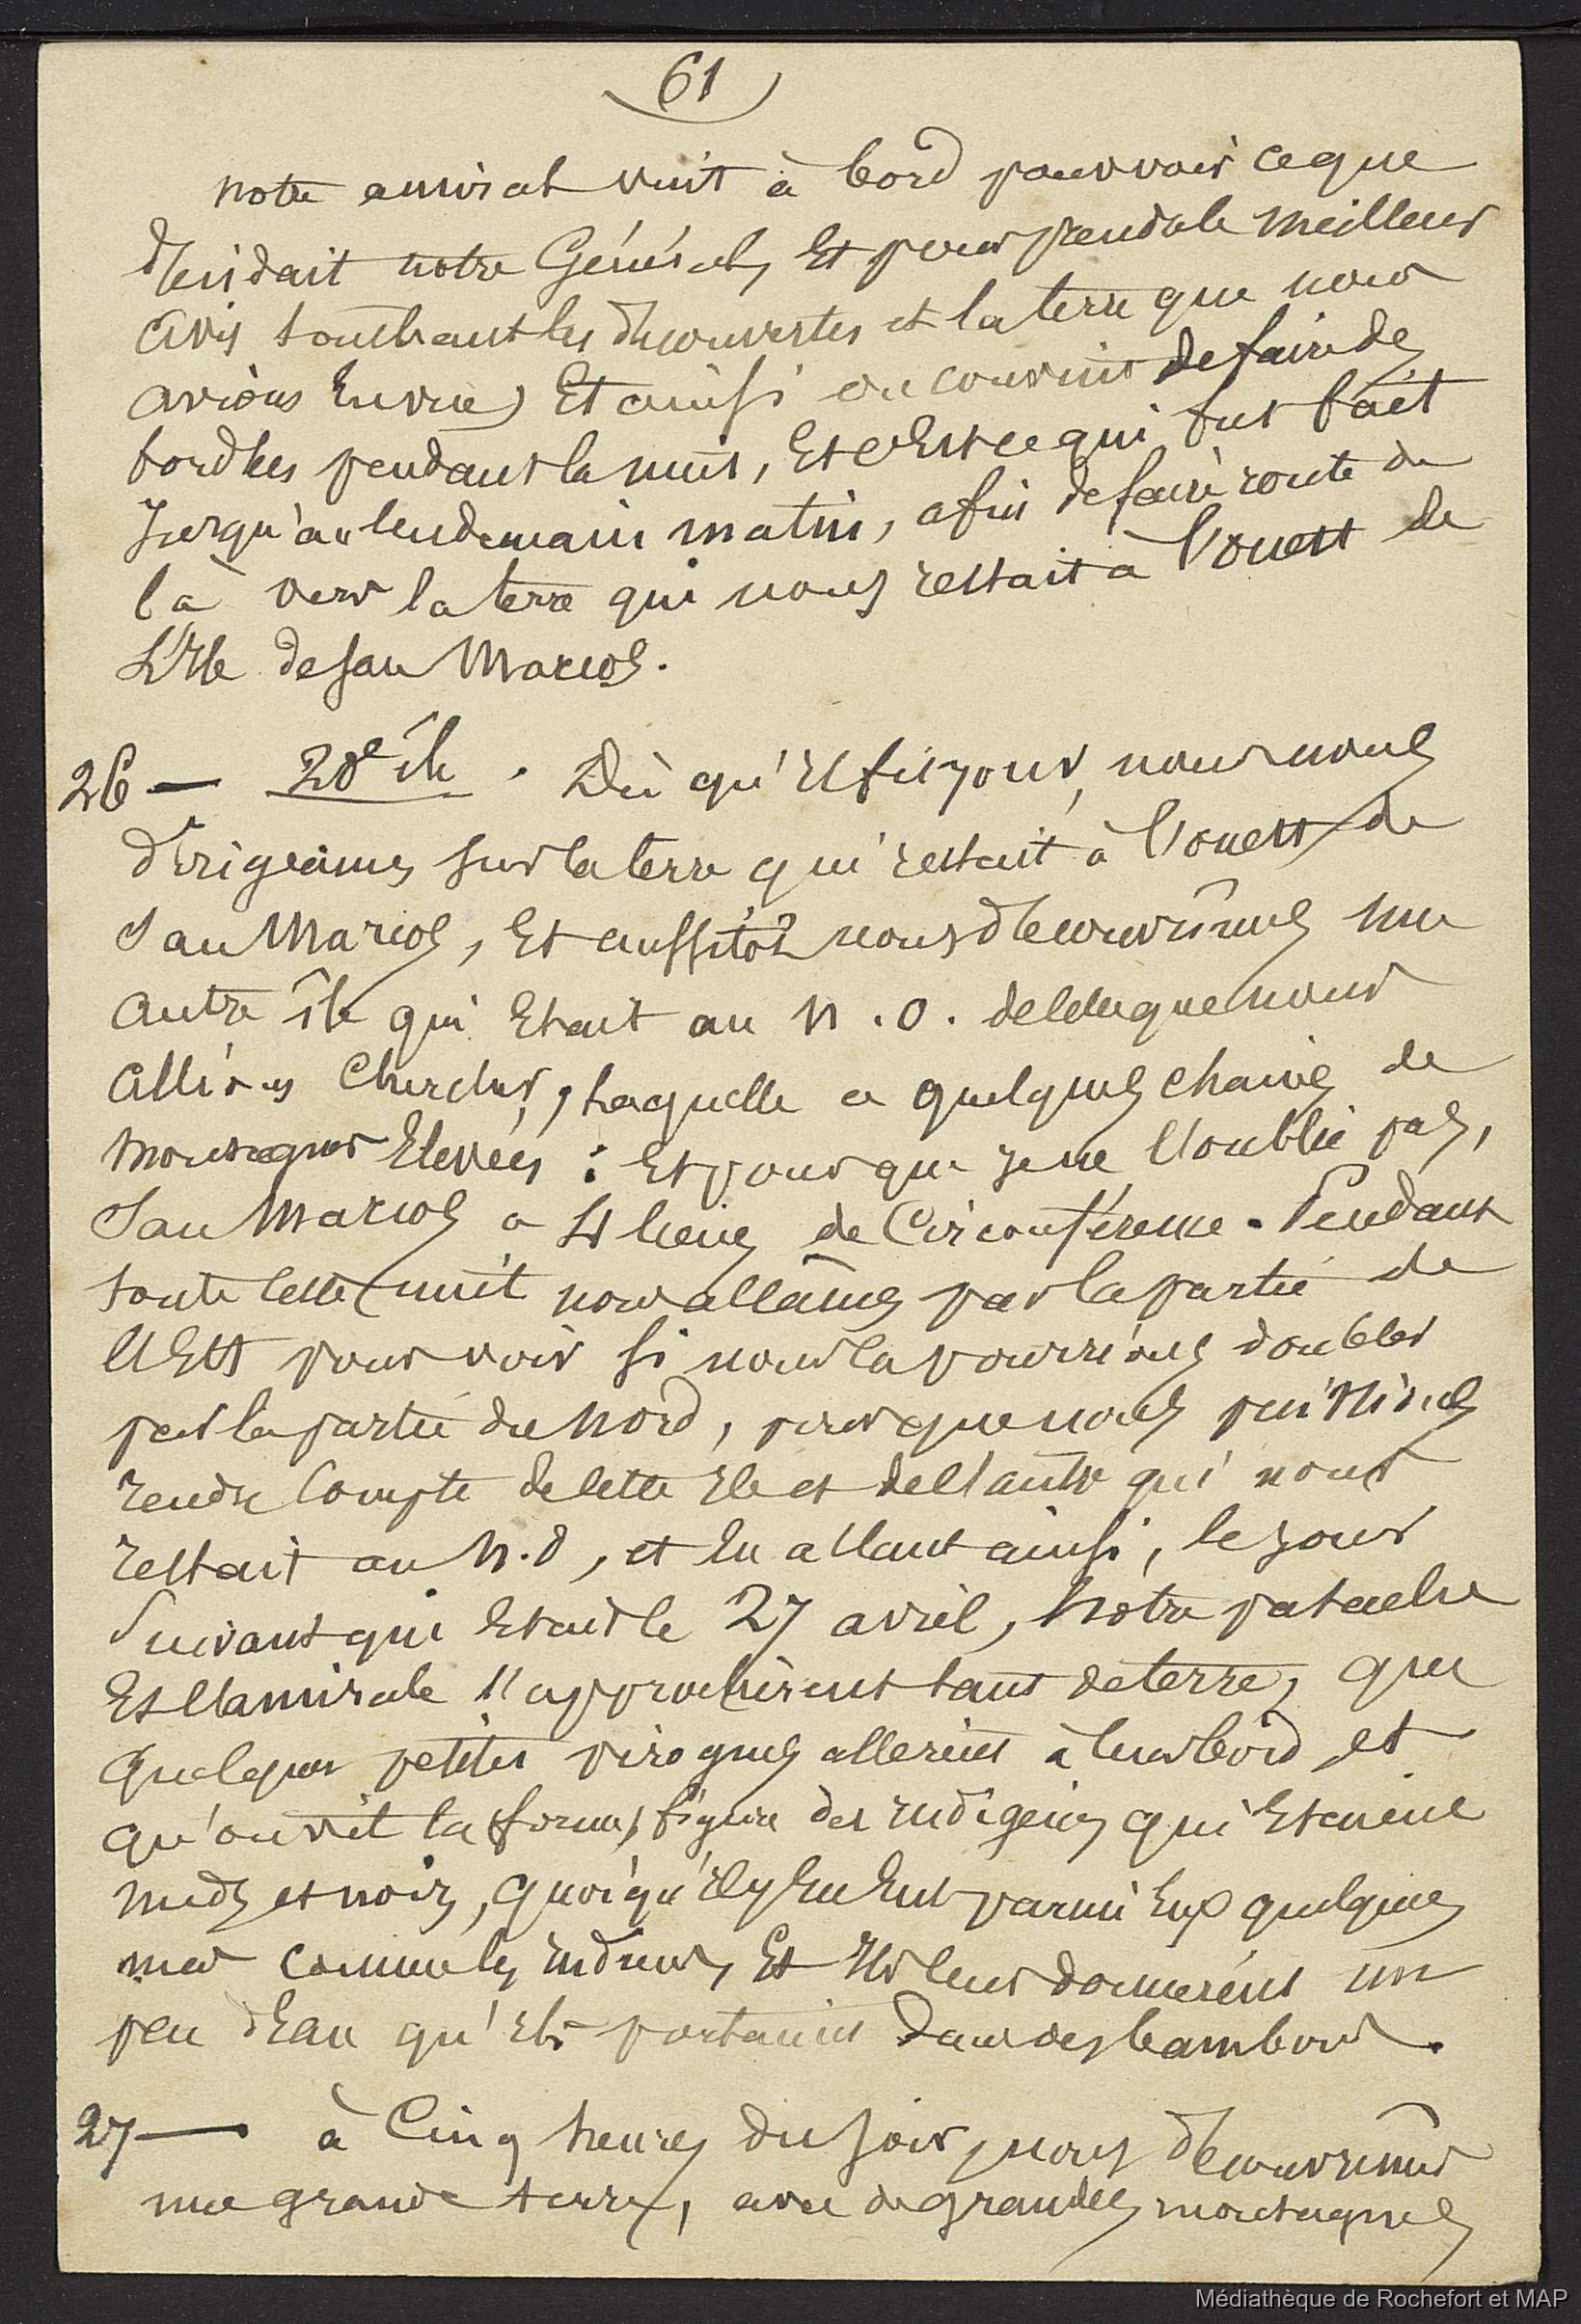 61
notre amiral vint à bord pour voir ce que
décidait notre Général, Et pour prendre le meilleur
avis touchant les découvertes et la terre que nous
avions En vue, Et ainsi on convint de faire des
bordées pendant la nuit, Et c'Est ce qui fut fait
Jusqu'au lendemain matin, afin de faire route de
là vers la terre qui nous restait à l'ouest de
L'Ile de San Marcos.
26 — 20e île. Dès qu'Il fit jour, nous nous
dirigeâmes sur la terre qui restait à l'ouest de
San Marcos, Et aussitôt nous découvrîmes une
autre île qui Etait au N.O. de celle que nous
Allions Chercher, Laquelle a quelques chaines de
montagnes Elevées : Et pour que je ne l'oublie pas,
San Marcos a lieues de Circonférence. Pendant
toute cette nuit nous allâmes par la partie de
l'Est pour voir si nous la pourrions doubler
par la partie du Nord, pour que nous puissions
rendre Compte de cette Ile et de l'autre qui nous
restait au N.O, et En allant ainsi, le jour
Suivant qui Etait le 27 avril, Notre patache
Et l'amirale s'approchèrent tant de terre, que
Quelques petites pirogues allerent à leur bord et
qu'on vit la forme, figure des Indigènes qui Etaient
nuds et noirs, Quoiqu'Il y En Eut parmi Eux quelques
uns comme les Indiens, Et Ils leur donnerent un
peu d'Eau qu'Ils portaient Dans des bambous.
27 — à Cinq heures du soir, nous découvrîmes
une grande terre, avec de grandes montagnes
Médiathèque de Rochefort et MAP